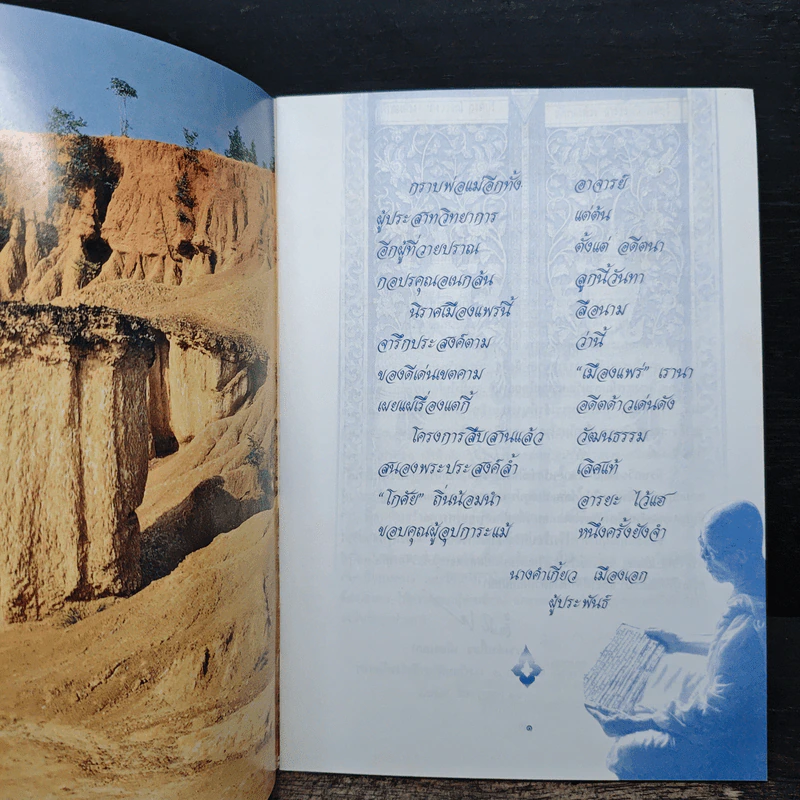 กราบพ่อแม่อีกทั้ง อาจารย์
ผู้ประสาทวิทยาการ แต่ต้น
อีกผู้ที่วายปราณ ตั้งแต่ อดีตนา
กอปรคุณอเนกล้น ลูกนี้วันทา
นิราศเมืองแพร่นี้ ลือนาม
จารึกประสงค์ตาม ว่านี้
ของดีเด่นเขตคาม "เมืองแพร่" เรานา
เผยแผ่เรื่องแต่กี้ อดีตด้าวเด่นดัง
โครงการสืบสานแล้ว วัฒนธรรม
สนองพระประสงค์ล้ำ เลิศแท้
"โกศัย" ถิ่นน้อมนำ อารยะ ไว้แฮ
ขอบคุณผู้อุปการะแม้ หนึ่งครั้งยังจำ
นางคำเกี้ยว เมืองเอก
ผู้ประพันธ์
๑